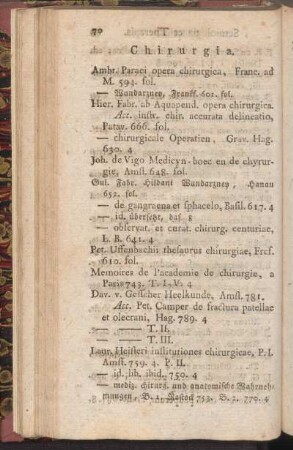 70
Chirurgia.
Ambr. Paraei opera chirurgica, Franc. ad
M. 594. fol.
— Wundarzney, Frankf. 601. fol.
Hier. Fabr. ab Aquapend. opera chirurgica.
Acc. instr. chir. accurata delineatio,
Patav. 666. fol.
— chirurgicale Operatien, Grav. Hag.
630. 4
Joh. de Vigo Medicyn-boec en de chyrur-
gie, Amst. 648. fol.
Gul. Fabr. Hildani Wundarzney, Hanau
652. fol.
— de gangraena et sphacelo, Basil. 617. 4
— id. übersetzt, das 8
— observat. et curat. chirurg. centuriae,
L. B. 641. 4
Pet. Uffenbachii thesaurus chirurgiae, Frcf.
610. fol.
Memoires de l'academie de chirurgie, a
Paris 743. T. I-V. 4
Dav. v. Gescher Heelkunde, Amst. 781.
Acc. Pet. Camper de fractura patellae
et olecrani, Hag. 789. 4
— — T. II.
— — T. III.
Laur. Heisteri institutiones chirurgicae, P. I.
Amst. 759. 4. P. II.
— id. lib. ibid. 750. 4
— mediz. chirurg. und anatomische Wahrneh-
mungen, B. 1. Rostock 753. B. 2. 770. 4